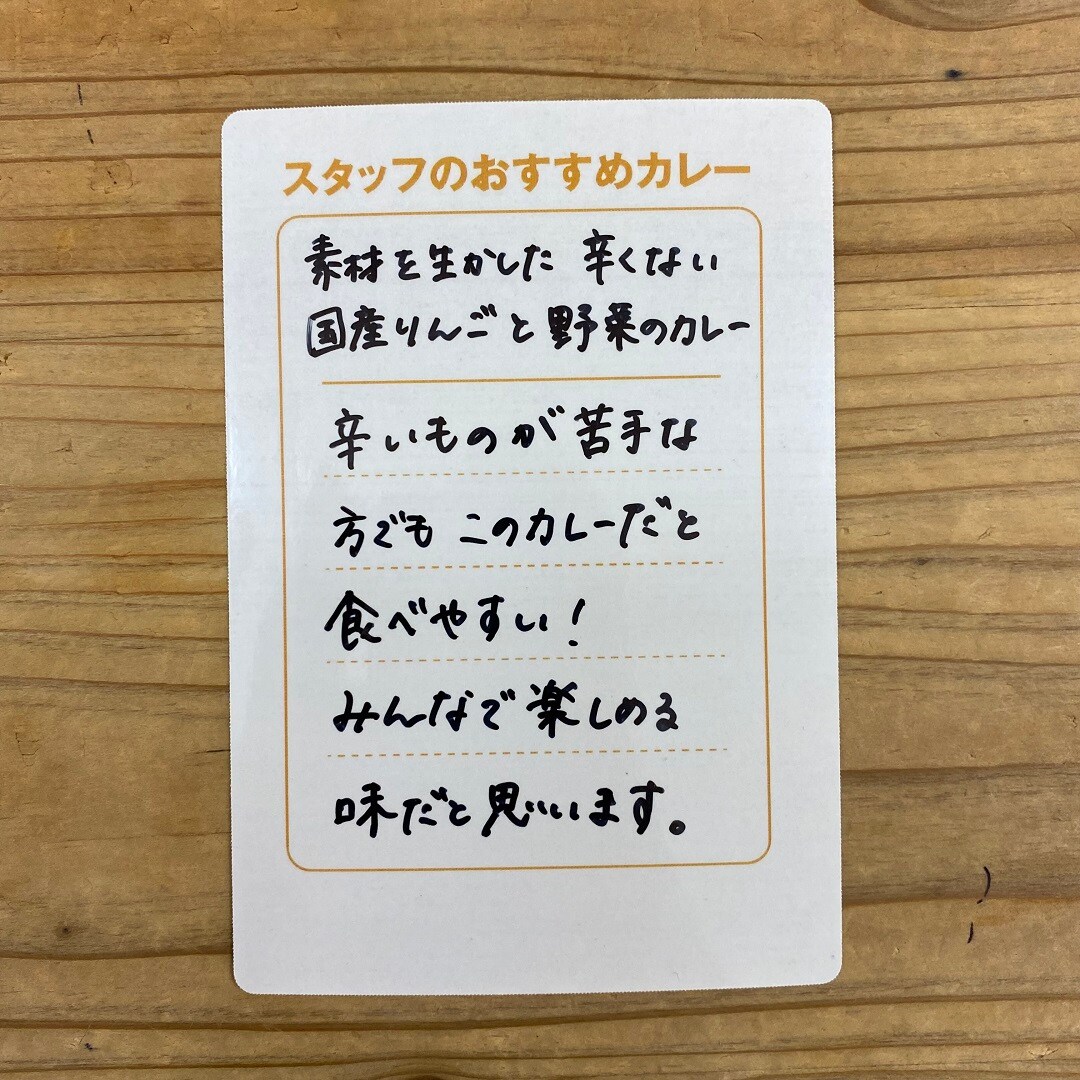 スタッフのおすすめカレー
素材を生かした 辛くない
国産りんごと野菜のカレー
辛いものが苦手な
方でも このカレーだと
食べやすい!
みんなで楽しめる
味だと思います。